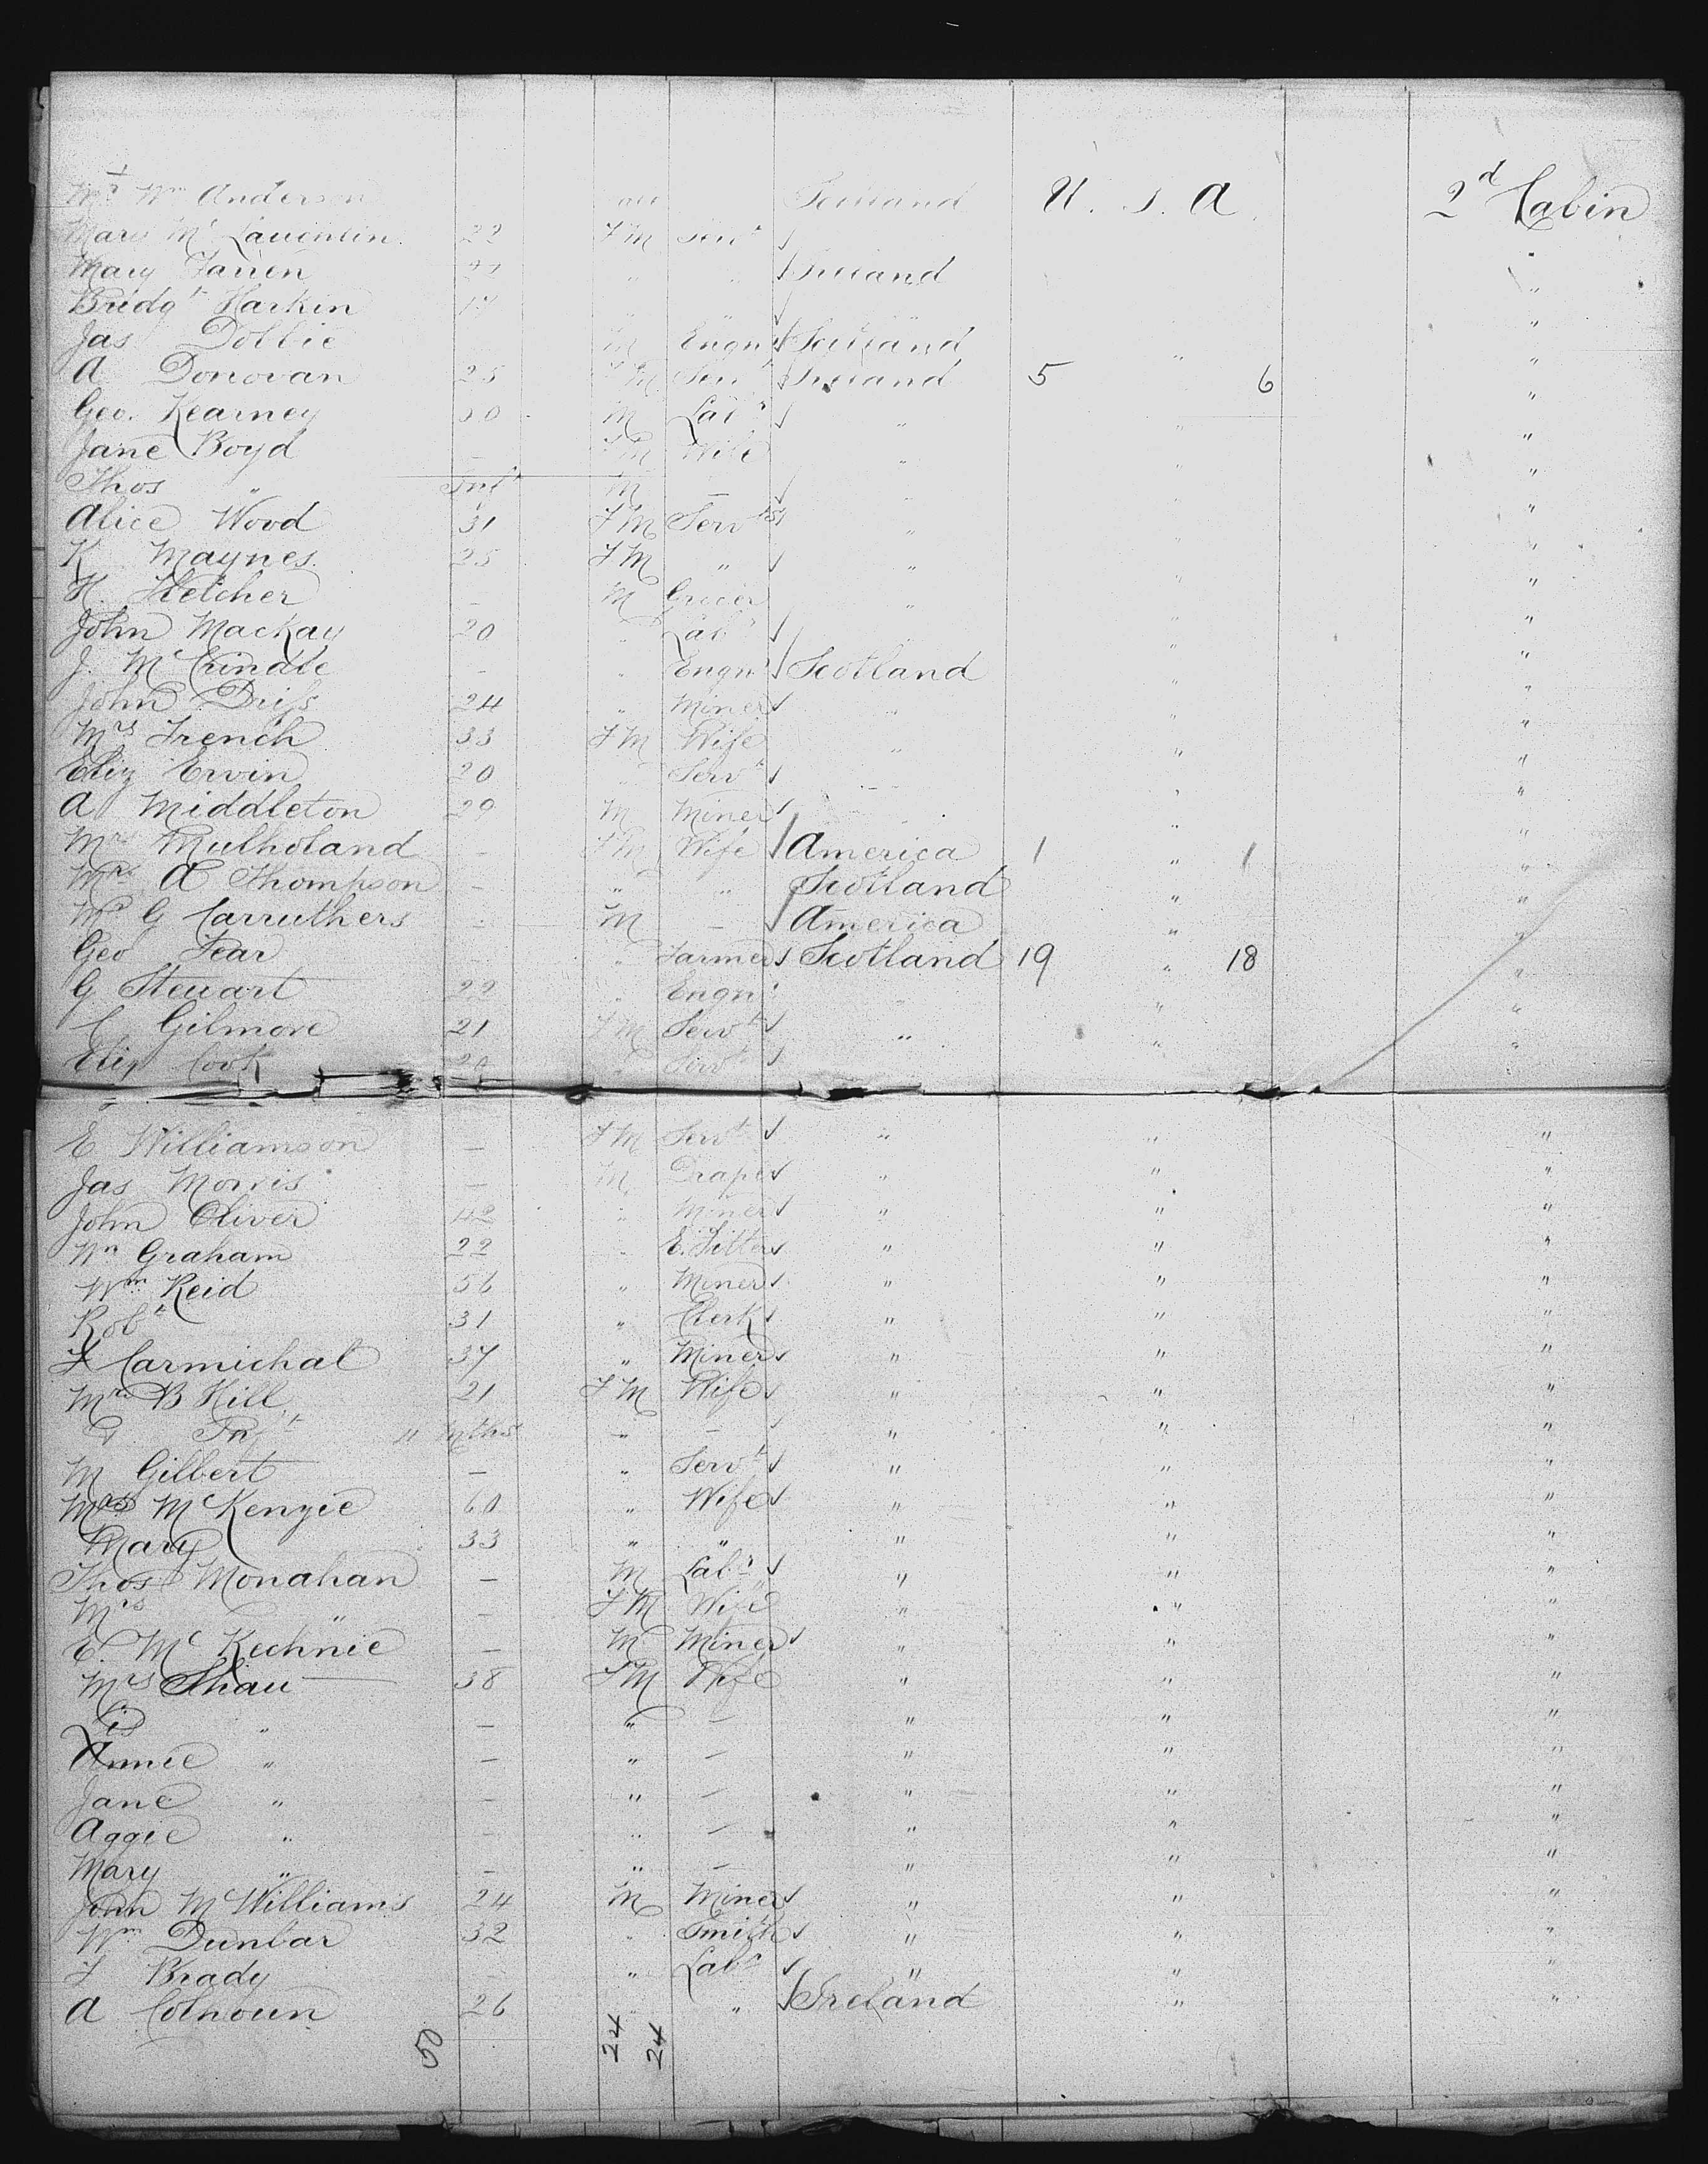 Mr Wm Anderson Scotland U. S. A. 2d Cabin
Mary Mc Lauchlin 22 FM Servt √
Mary "  " √ Ireland "
Bridgt Harkin " " √ "
Jas Dobbie M Engnr √ Scotland "
A Donovan 25 FM Servt √ Ireland 5 " 6 "
Geo. Kearney 30 M Labr √ " " "
Jane Boyd — FM Wife " " "
Thos " Inft M — √ " " "
Alice Wood 31 FM Servt √ " " "
K Maynes. 25 FM " √ " " "
H. Fletcher — M Grocer " " "
John Mackay 20 " Labr √ " " "
J. Mc Crindle — " Engnr √ Scotland " "
John 24 " Miner √ " " "
Mrs French 33 FM Wife " " "
Eliz Ervin 20 Servt √ " " "
A Middleton 29 M Miner √ " " "
Mrs Mulholand — FM Wife √ America 1 " 1 "
Mrs A Thompson — " " Scotland " "
G Carruthers — M — √ America " "
Geo Fear — " Farmer √ Scotland 19 " 18 "
G Stewart 22 " Engnr " " "
C Gilmore 21 FM Servt √ " " "
Cook 20 " Servt √
E Williamson — FM Servt √ " " "
Jas Morris — M Draper √ " " "
John Oliver 42 " Miner √ " " "
Wm Graham 22 " E. Fitter √ " " "
Wm Reid 56 " Miner √ " " "
Robt 31 " Clerk √ " " "
Carmichal 37 " Miner √ " " "
Mrs B Hill 21 FM Wife √ " " "
Inft 11 Mths " — √ " " "
M Gilbert — " Servt √ " " "
Mrs Mc Kenzie 60 " Wife √ " " "
Mary 33 " " " " "
Thos Monahan — M Labr √ " " "
Mrs " — FM Wife " " "
E. Mc Kechnie — M Miner √ " " "
Mrs Shaw 38 FM Wife " " "
Lis " — " — " " "
Annie " — " — " " "
Jane " — " — " " "
Aggie " — " — " " "
Mary " — " — " " "
John Mc Williams 24 M Miner √ " " "
Wm Dunbar 32 " Smith √ " " "
F Brady — " Labr √ " " "
A Colhoun 26 " " √ Ireland " "
50 24 24